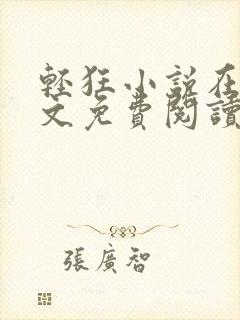 輕狂小說在
文免費閱讀
張廣智